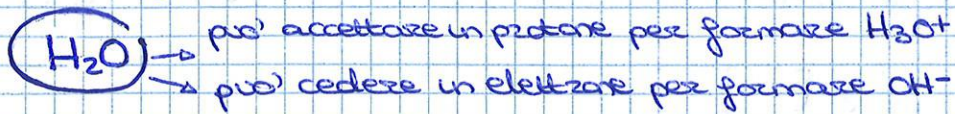 H₂O → può accettare un protone per formare H₃O+
→ può cedere un elettrone per formare OH-